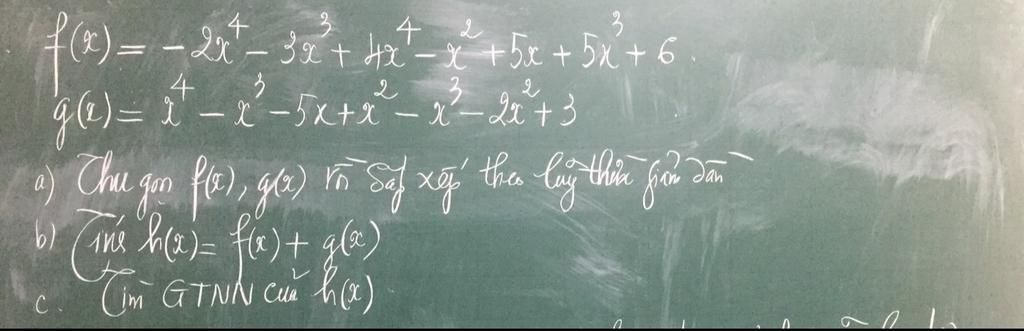 f(x) = - 2x⁴ - 3x³ + 4x⁴ - x² + 5x + 5x³ + 6.
g(x) = x⁴ - x³ - 5x + x² - x³ - 2x² + 3
a) Thu gọn f(x), g(x) rồi sắp xếp theo lũy thừa giảm dần
b) Tính h(x) = f(x) + g(x)
c. Tìm GTNN của h(x)